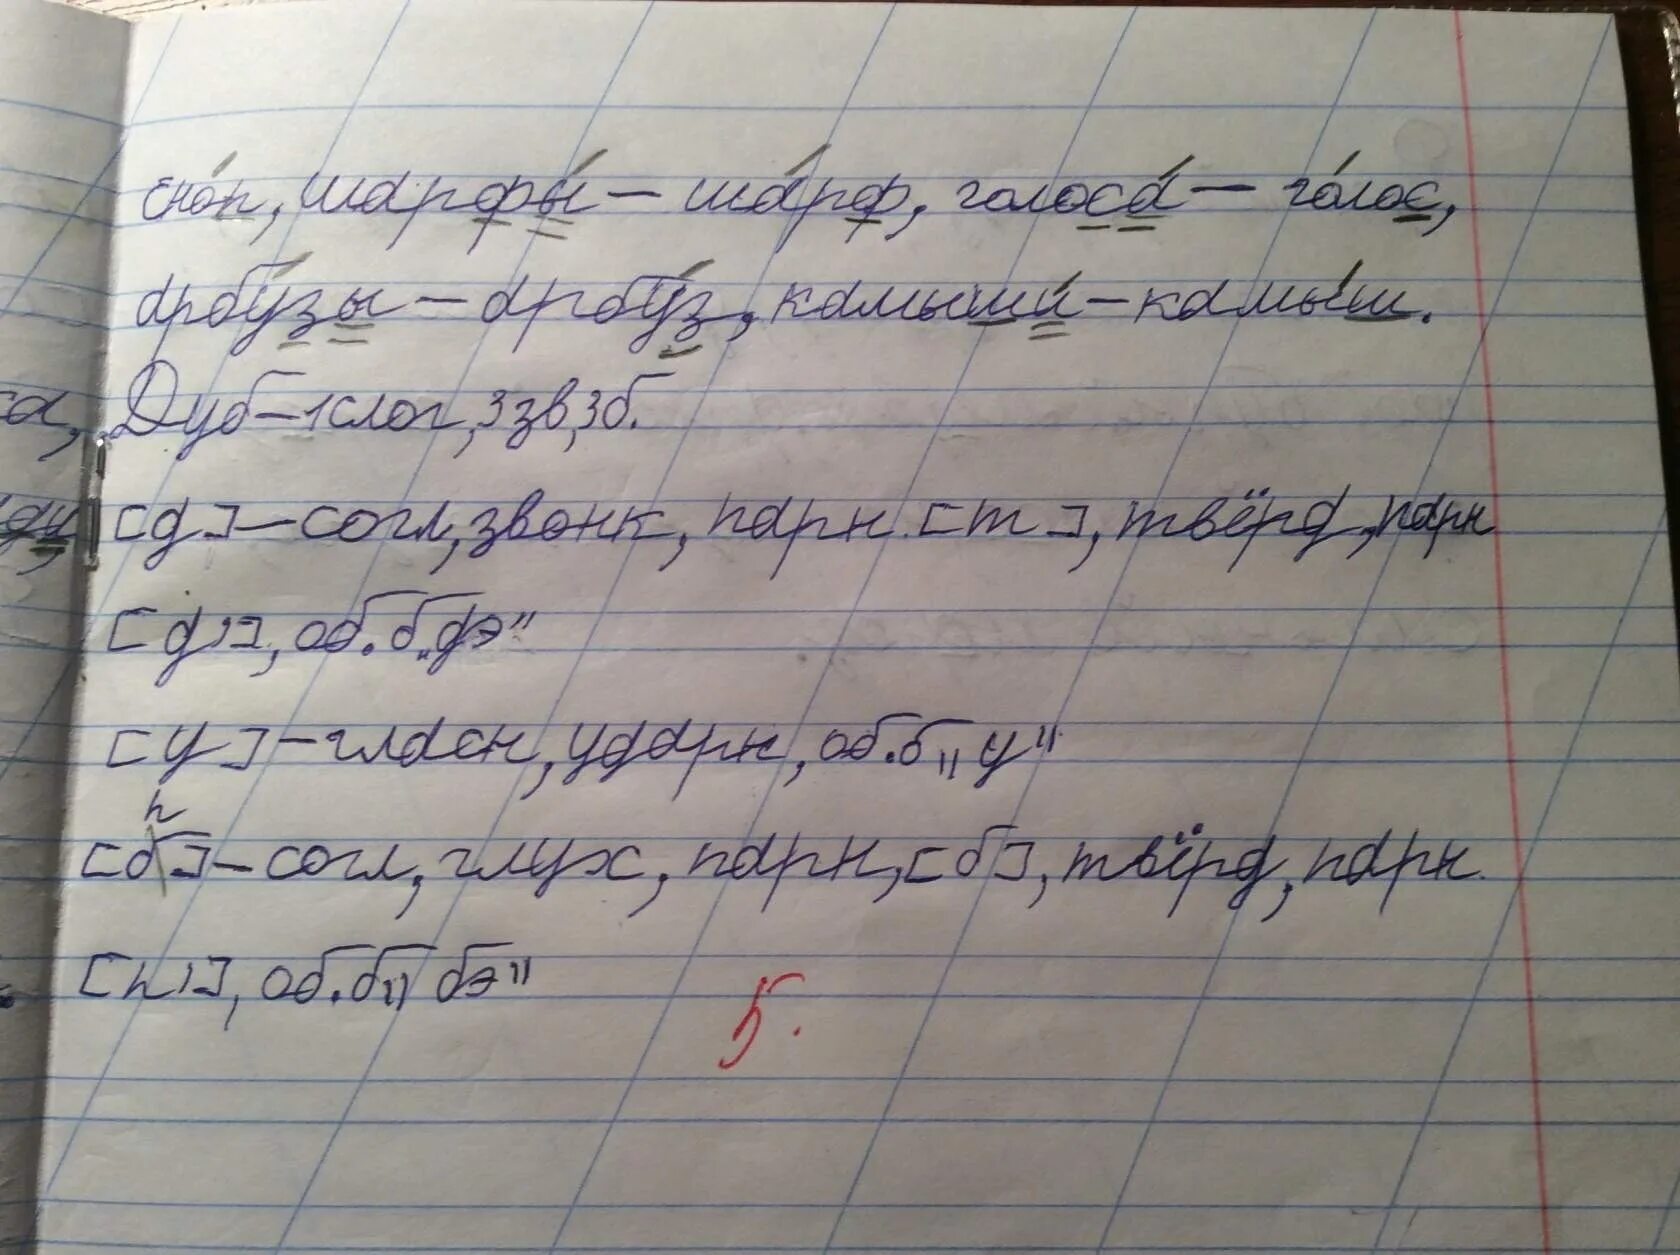 сно́п, шарфы́ – ша́рф, голоса́ – го́лос,
арбу́зы – арбу́з, камыши́ – камы́ш.
са, Дуб – 1 слог, 3 зв, 3 б.
ду, [д] – согл, звонк, парн. [т], твёрд, парн
[д'], об. б. „дэ"
[у] – гласн, ударн, об. б „у"
п
[б] – согл, глух, парн, [б], твёрд, парн.
[п'], об. б „бэ"
5.